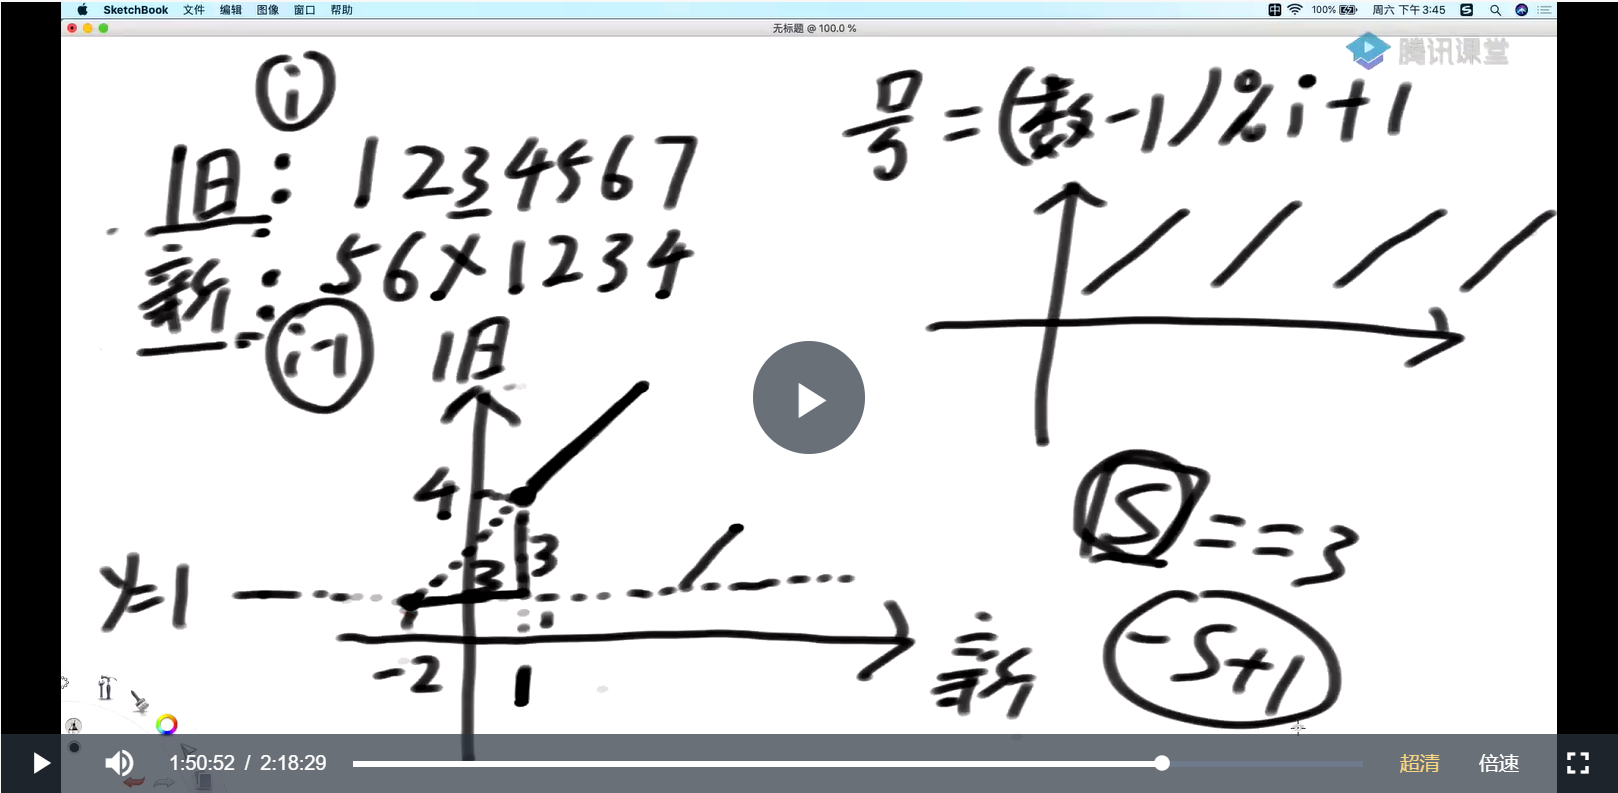 SketchBook 文件 编辑 图像 窗口 帮助 100% 周六 下午 3:45
无标题 @ 100.0 %
腾讯课堂
i
号=(数-1)%i+1
旧: 1 2 3 4 5 6 7
新: 5 6 X 1 2 3 4
i-1
旧
4
S==3
3 3
y=1
1
-2 1
新
-S+1
1:50:52 / 2:18:29 超清 倍速